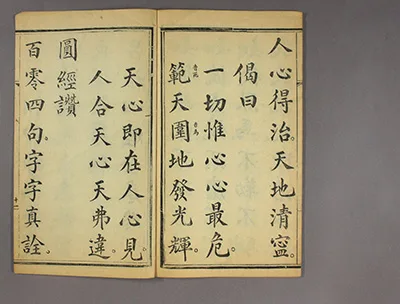 人心得治。天地清寧
偈曰
一切惟心心最危。
範天圍地發光輝。
天心即在人心見。
人合天心天弗違。
圓經讚
百零四句。字字真詮。